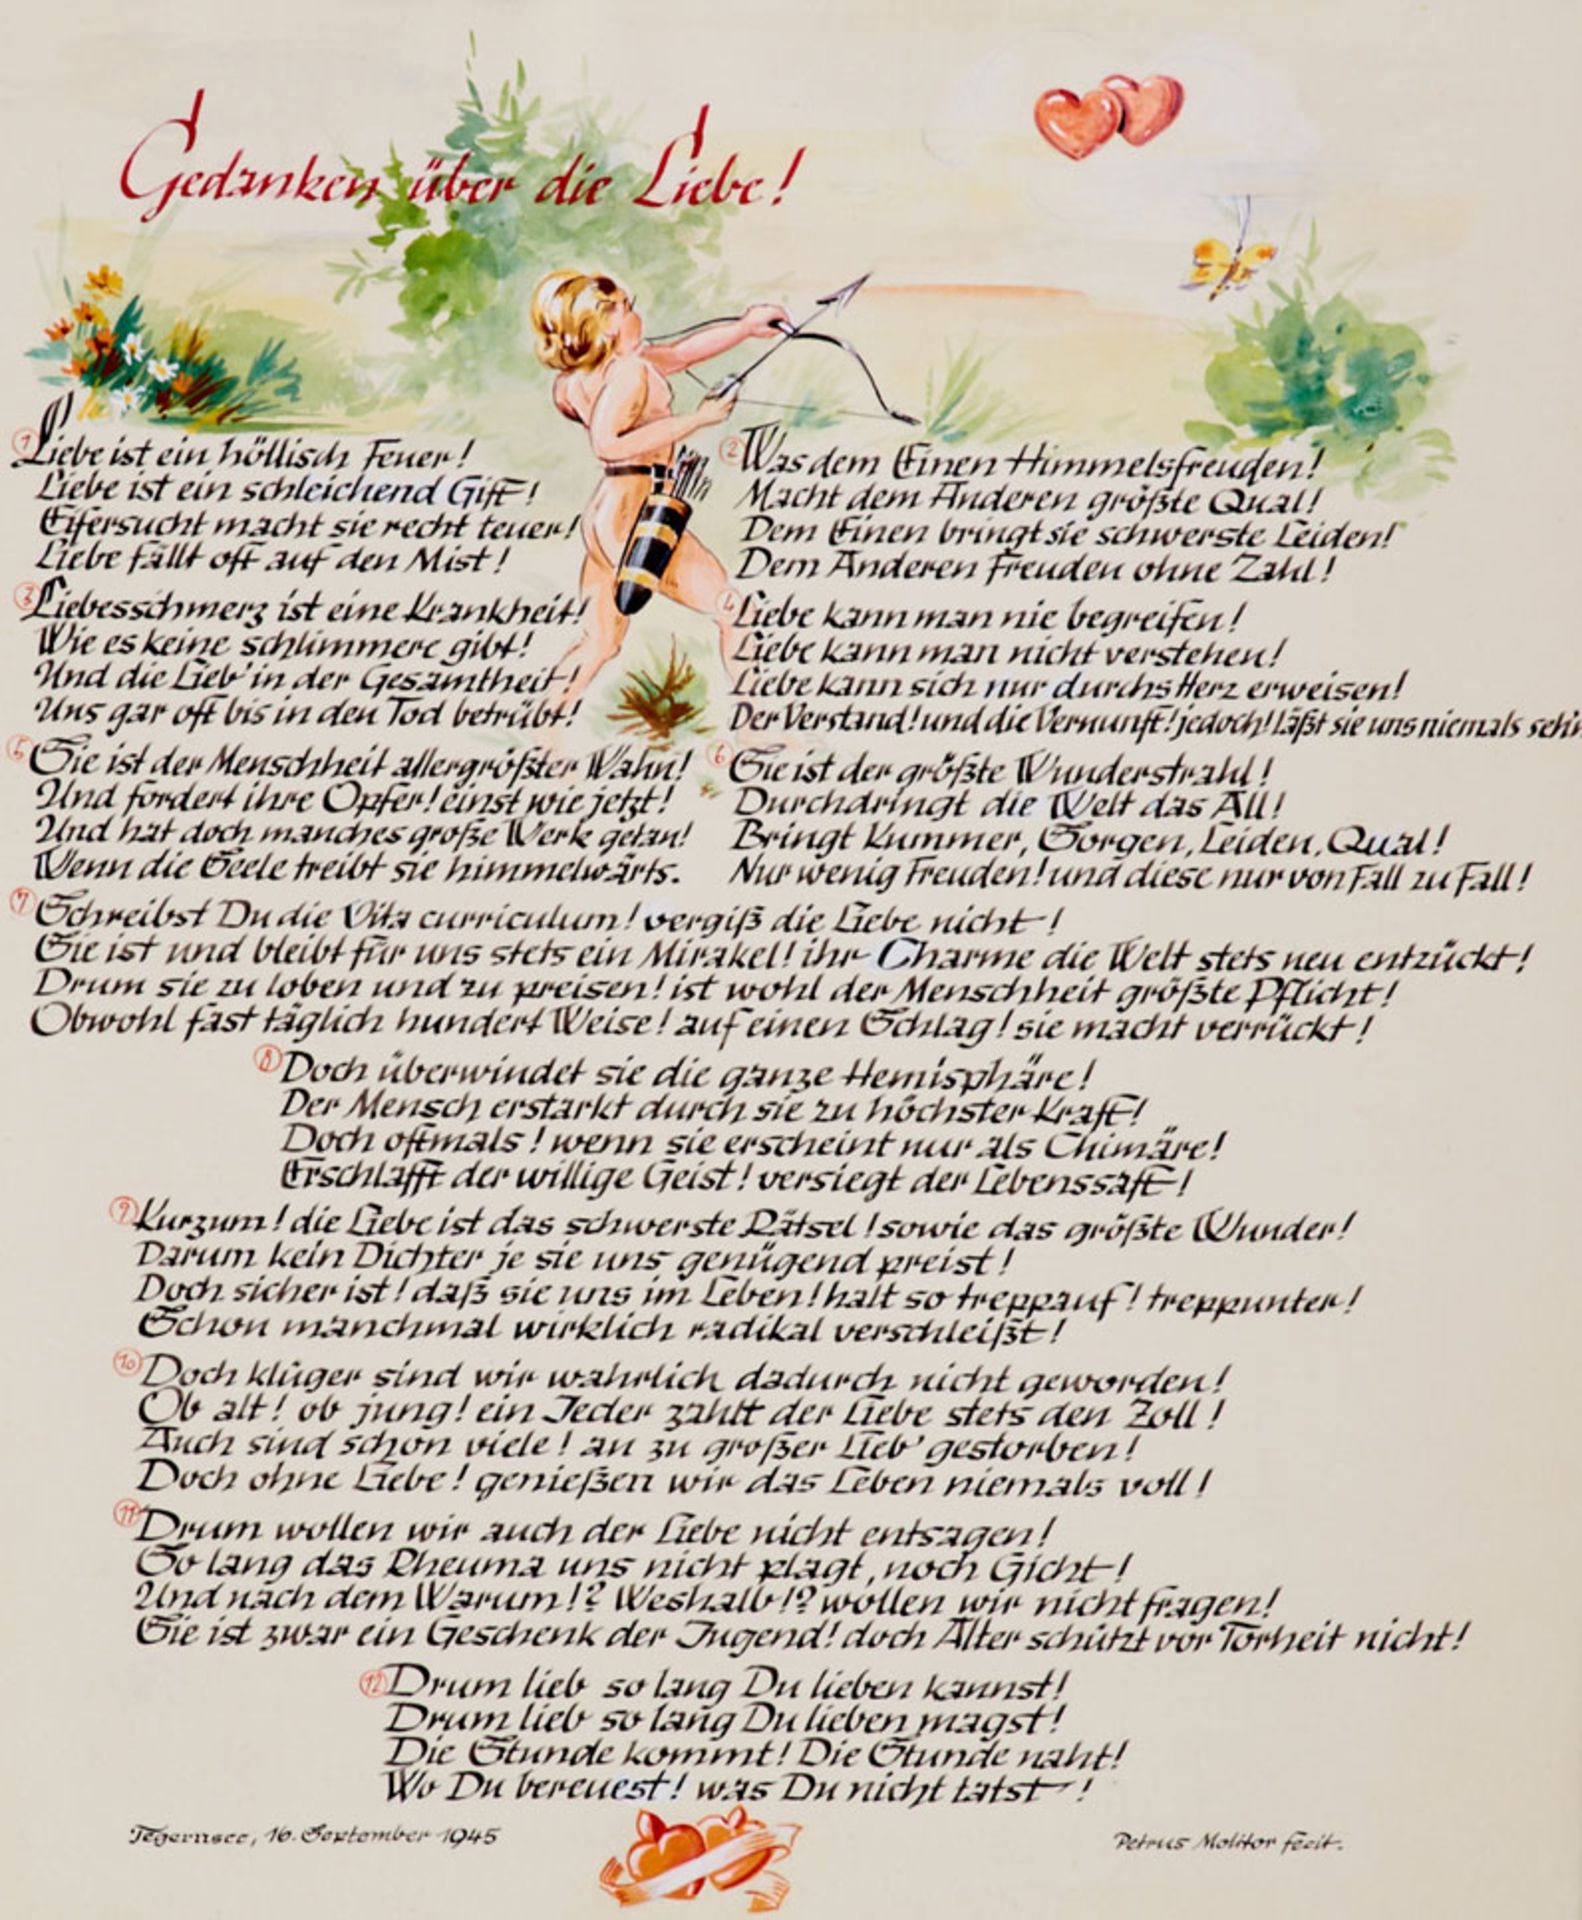 Gedanken über die Liebe!
1 Liebe ist ein höllisch Feuer!
Liebe ist ein schleichend Gift!
Eifersucht macht sie recht teuer!
Liebe fällt oft auf den Mist!
2 Was dem Einen Himmelsfreuden!
Macht dem Anderen größte Qual!
Dem Einen bringt sie schwerste Leiden!
Dem Anderen Freuden ohne Zahl!
3 Liebesschmerz ist eine Krankheit!
Wie es keine schlimmere gibt!
Und die Lieb' in der Gesamtheit!
Uns gar oft bis in den Tod betrübt!
4 Liebe kann man nie begreifen!
Liebe kann man nicht verstehen!
Liebe kann sich nur durchs Herz erweisen!
Der Verstand! und die Vernunft! jedoch! läßt sie uns niemals
5 Sie ist der Menschheit allergrößter Wahn!
Und fordert ihre Opfer! einst wie jetzt!
Und hat doch manches große Werk getan!
Wenn die Seele treibt sie himmelwärts.
6 Sie ist der größte Wunderstrahl!
Durchdringt die Welt das All!
Bringt Kummer, Sorgen, Leiden, Qual!
Nur wenig Freuden! und diese nur von Fall zu Fall!
7 Schreibst Du die Vita curriculum! vergiß die Liebe nicht!
Sie ist und bleibt für uns stets ein Mirakel! ihr Charme die Welt stets neu entzückt!
Drum sie zu loben und zu preisen! ist wohl der Menschheit größte Pflicht!
Obwohl fast täglich hundert Weise! auf einen Schlag! sie macht verrückt!
8 Doch überwindet sie die ganze Hemisphäre!
Der Mensch erstarkt durch sie zu höchster Kraft!
Doch oftmals! wenn sie erscheint nur als Chimäre!
Erschlafft der willige Geist! versiegt der Lebenssaft!
9 Kurzum! die Liebe ist das schwerste Rätsel! sowie das größte Wunder!
Darum kein Dichter je sie uns genügend preist!
Doch sicher ist! daß sie uns im Leben! halt so treppauf! treppunter!
Schon manchmal wirklich radikal verschleißt!
10 Doch klüger sind wir wahrlich dadurch nicht geworden!
Ob alt! ob jung! ein Jeder zahlt der Liebe stets den Zoll!
Auch sind schon viele! an zu großer Lieb' gestorben!
Doch ohne Liebe! genießen wir das Leben niemals voll!
11 Drum wollen wir auch der Liebe nicht entsagen!
So lang das Rheuma uns nicht plagt, noch Gicht!
Und nach dem Warum!? Weshalb!? wollen wir nicht fragen!
Sie ist zwar ein Geschenk der Jugend! doch Alter schützt vor Torheit nicht!
12 Drum lieb so lang Du lieben kannst!
Drum lieb so lang Du lieben magst!
Die Stunde kommt! Die Stunde naht!
Wo Du bereuest! was Du nicht tatst!
Tegernsee, 16. September 1945
Petrus Molitor fecit.